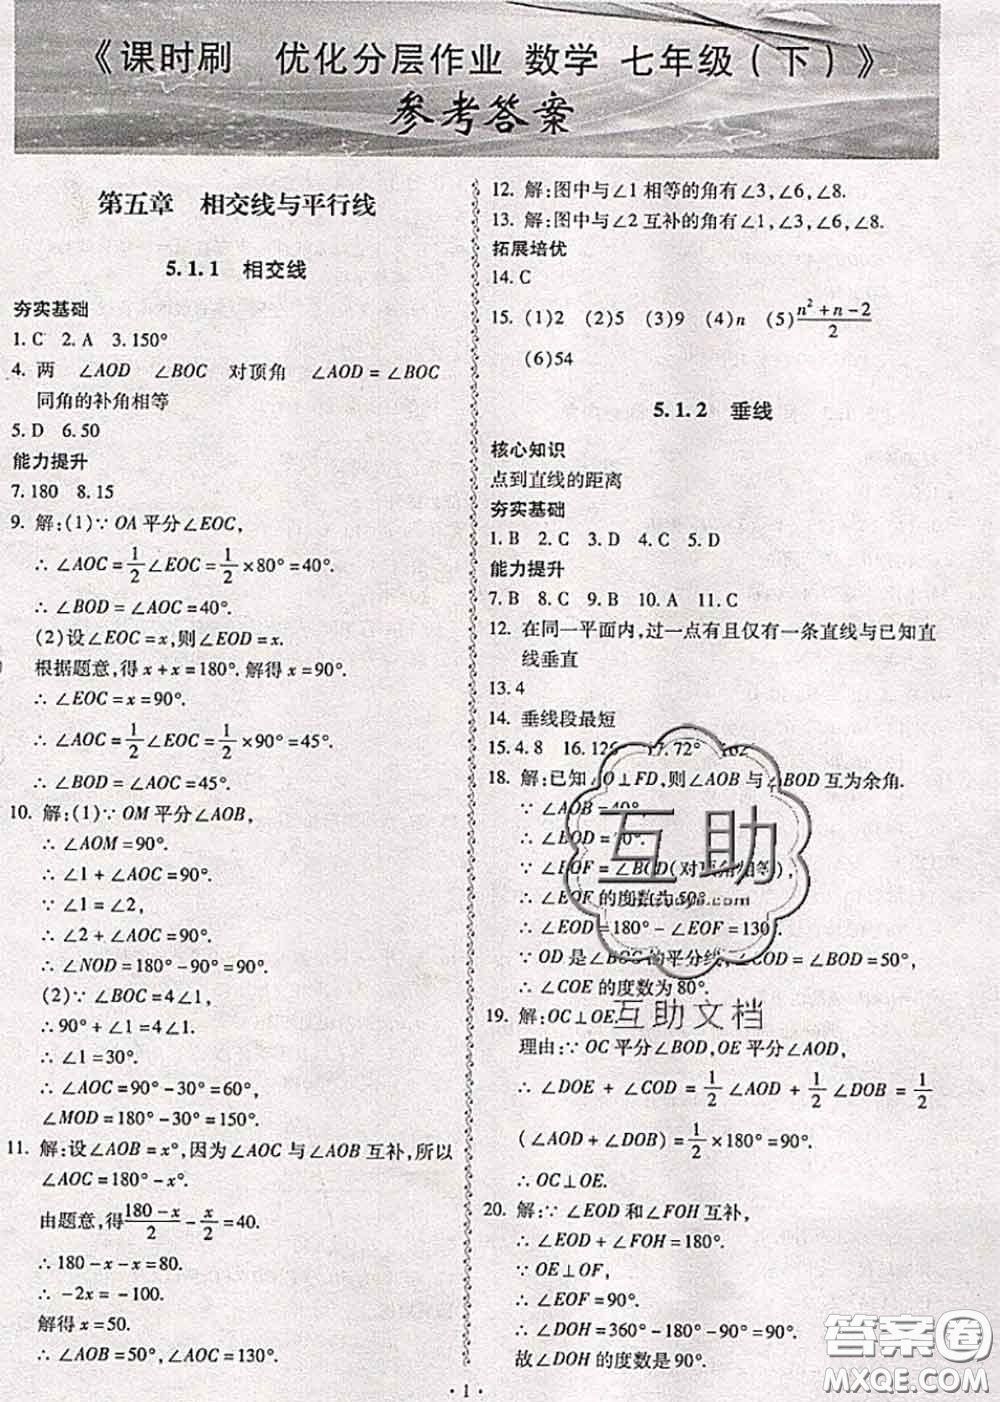 《课时刷 优化分层作业 数学 七年级(下)》
参考答案
第五章 相交线与平行线
5.1.1 相交线
夯实基础
1.C 2.A 3.150°
4. 两 ∠AOD ∠BOC 对顶角 ∠AOD=∠BOC
同角的补角相等
5.D 6.50
能力提升
7.180 8.15
9. 解:(1)∵OA平分∠EOC,
∴∠AOC=1/2∠EOC=1/2×80°=40°.
∴∠BOD=∠AOC=40°.
(2)设∠EOC=x,则∠EOD=x.
根据题意,得x+x=180°.解得x=90°.
∴∠EOC=x=90°.
∴∠AOC=1/2∠EOC=1/2×90°=45°.
∴∠BOD=∠AOC=45°.
10. 解:(1)∵OM平分∠AOB,
∴∠AOM=90°.
∴∠1+∠AOC=90°.
∵∠1=∠2,
∴∠2+∠AOC=90°.
∴∠NOD=180°-90°=90°.
(2)∵∠BOC=4∠1,
∴90°+∠1=4∠1.
∴∠1=30°.
∴∠AOC=90°-30°=60°,
∠MOD=180°-30°=150°.
11. 解:设∠AOB=x°,因为∠AOC与∠AOB互补,所以
∠AOC=180°-x°.
由题意,得(180-x)/2-x/2=40.
∴180-x-x=80.
∴-2x=-100.
解得x=50.
∴∠AOB=50°,∠AOC=130°.
12. 解:图中与∠1相等的角有∠3,∠6,∠8.
13. 解:图中与∠2互补的角有∠1,∠3,∠6,∠8.
拓展培优
14.C
15. (1)2 (2)5 (3)9 (4)n (5)(n²+n-2)/2
(6)54
5.1.2 垂线
核心知识
点到直线的距离
夯实基础
1.B 2.C 3.D 4.C 5.D
能力提升
7.B 8.C 9.B 10.A 11.C
12. 在同一平面内,过一点有且仅有一条直线与已知直
线垂直
13.4
14. 垂线段最短
15.4.8 16.126 17.72° 162
18. 解:已知AO⊥FD,则∠AOB与∠BOD互为余角.
∵∠AOB=40°
∴∠BOD=50°.
∵∠EOF=∠BOD(对顶角相等),
∴∠EOF的度数为50°.
∴∠EOD=180°-∠EOF=130°.
∵OD是∠BOC的平分线,∠COD=∠BOD=50°,
∴∠COE的度数为80°.
19. 解:OC⊥OE.
理由:∵OC平分∠BOD,OE平分∠AOD,
∴∠DOE+∠COD=1/2∠AOD+1/2∠DOB=1/2
(∠AOD+∠DOB)=1/2×180°=90°.
∴OC⊥OE.
20. 解:∵∠EOD和∠FOH互补,
∴∠EOD+∠FOH=180°.
∵OE⊥OF,
∴∠EOF=90°.
∴∠DOH=360°-180°-90°=90°.
故∠DOH的度数是90°.
互助
互助文档
答案圈
MXQE.COM
·1·